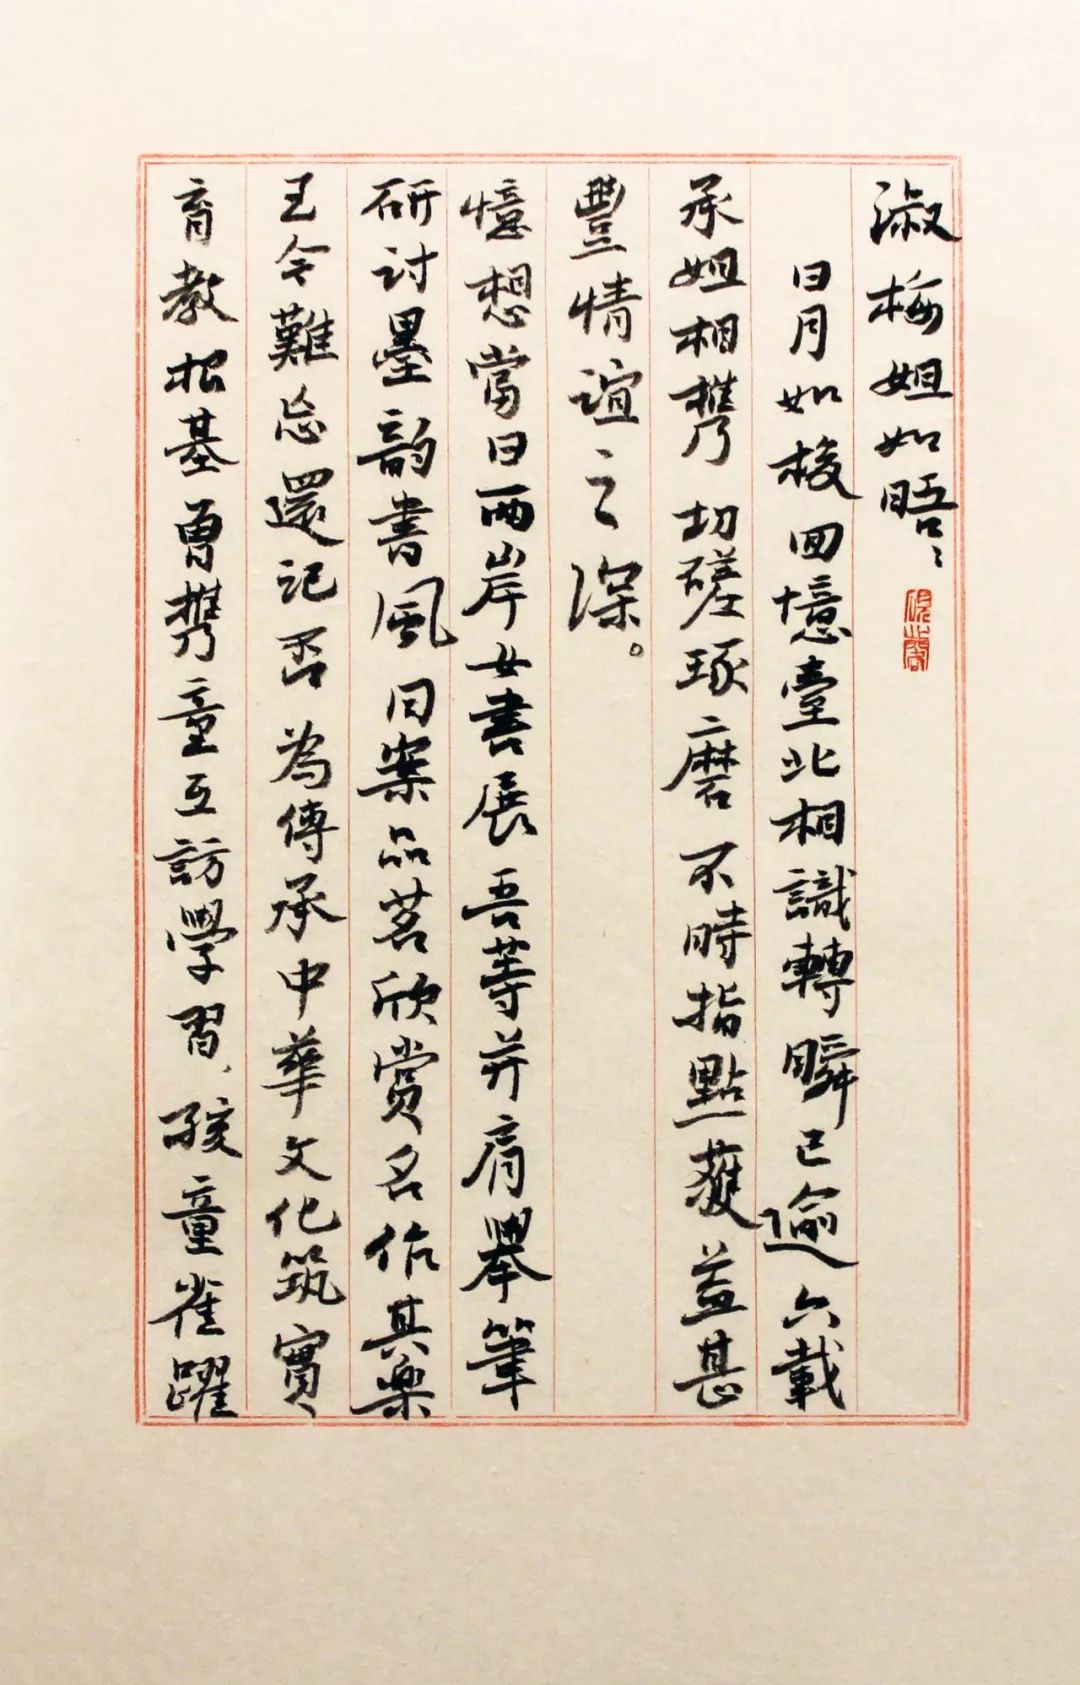 淑梅姐如晤：
日月如梭回憶臺北相識轉瞬已逾六載
承姐相携切磋琢磨不時指點獲益甚
豐情誼之深。
憶想當日兩岸女書展吾等并肩舉筆
研討墨韵書風同案品茗欣賞名作其樂
至今難忘還記否為傳承中華文化筑實
育教根基曾携童互訪學習、孩童雀躍